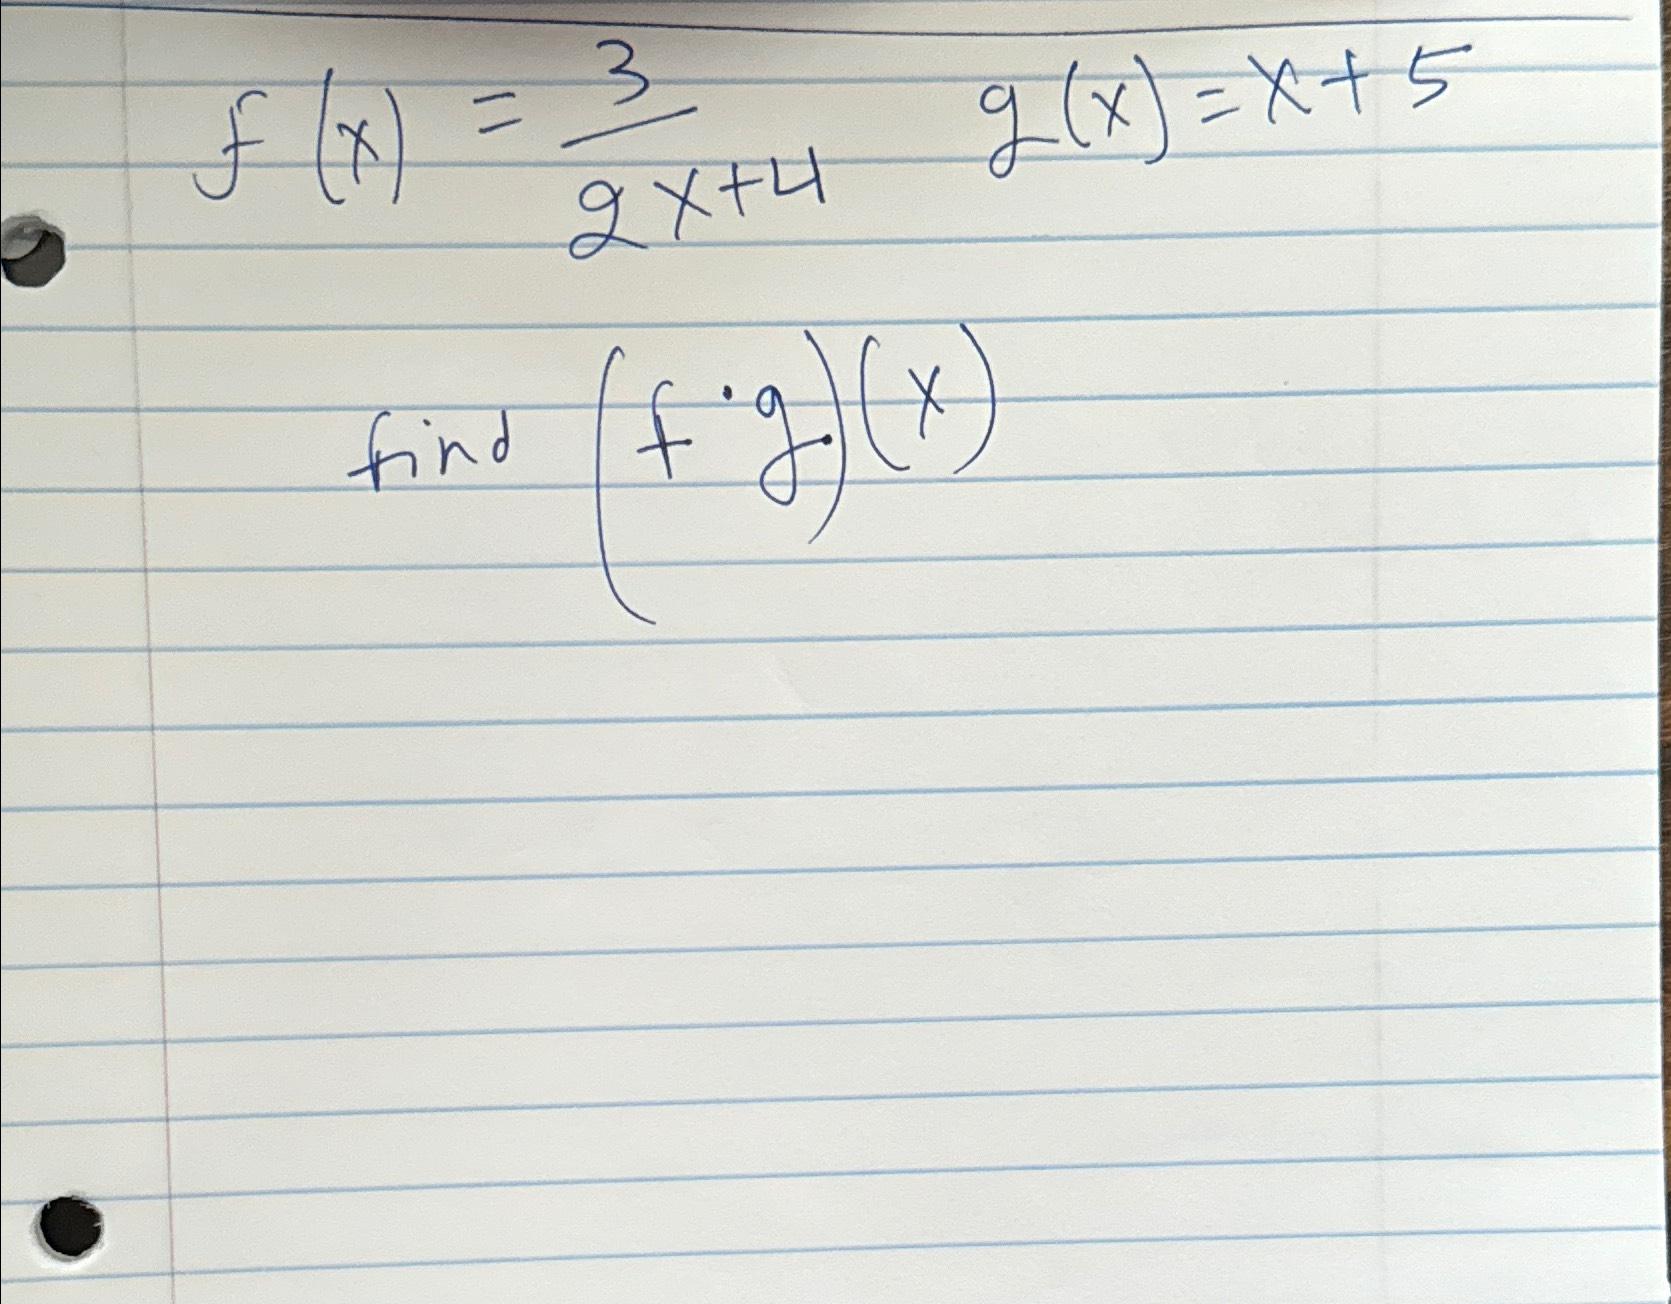 f(x) = 3/(2x+4) g(x) = x + 5
find (f · g)(x)